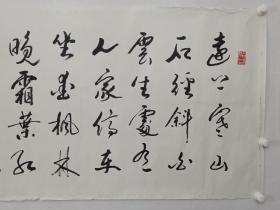 遠上寒山
石經斜白
雲生處有
人家停車
坐愛楓林
晚霜葉紅